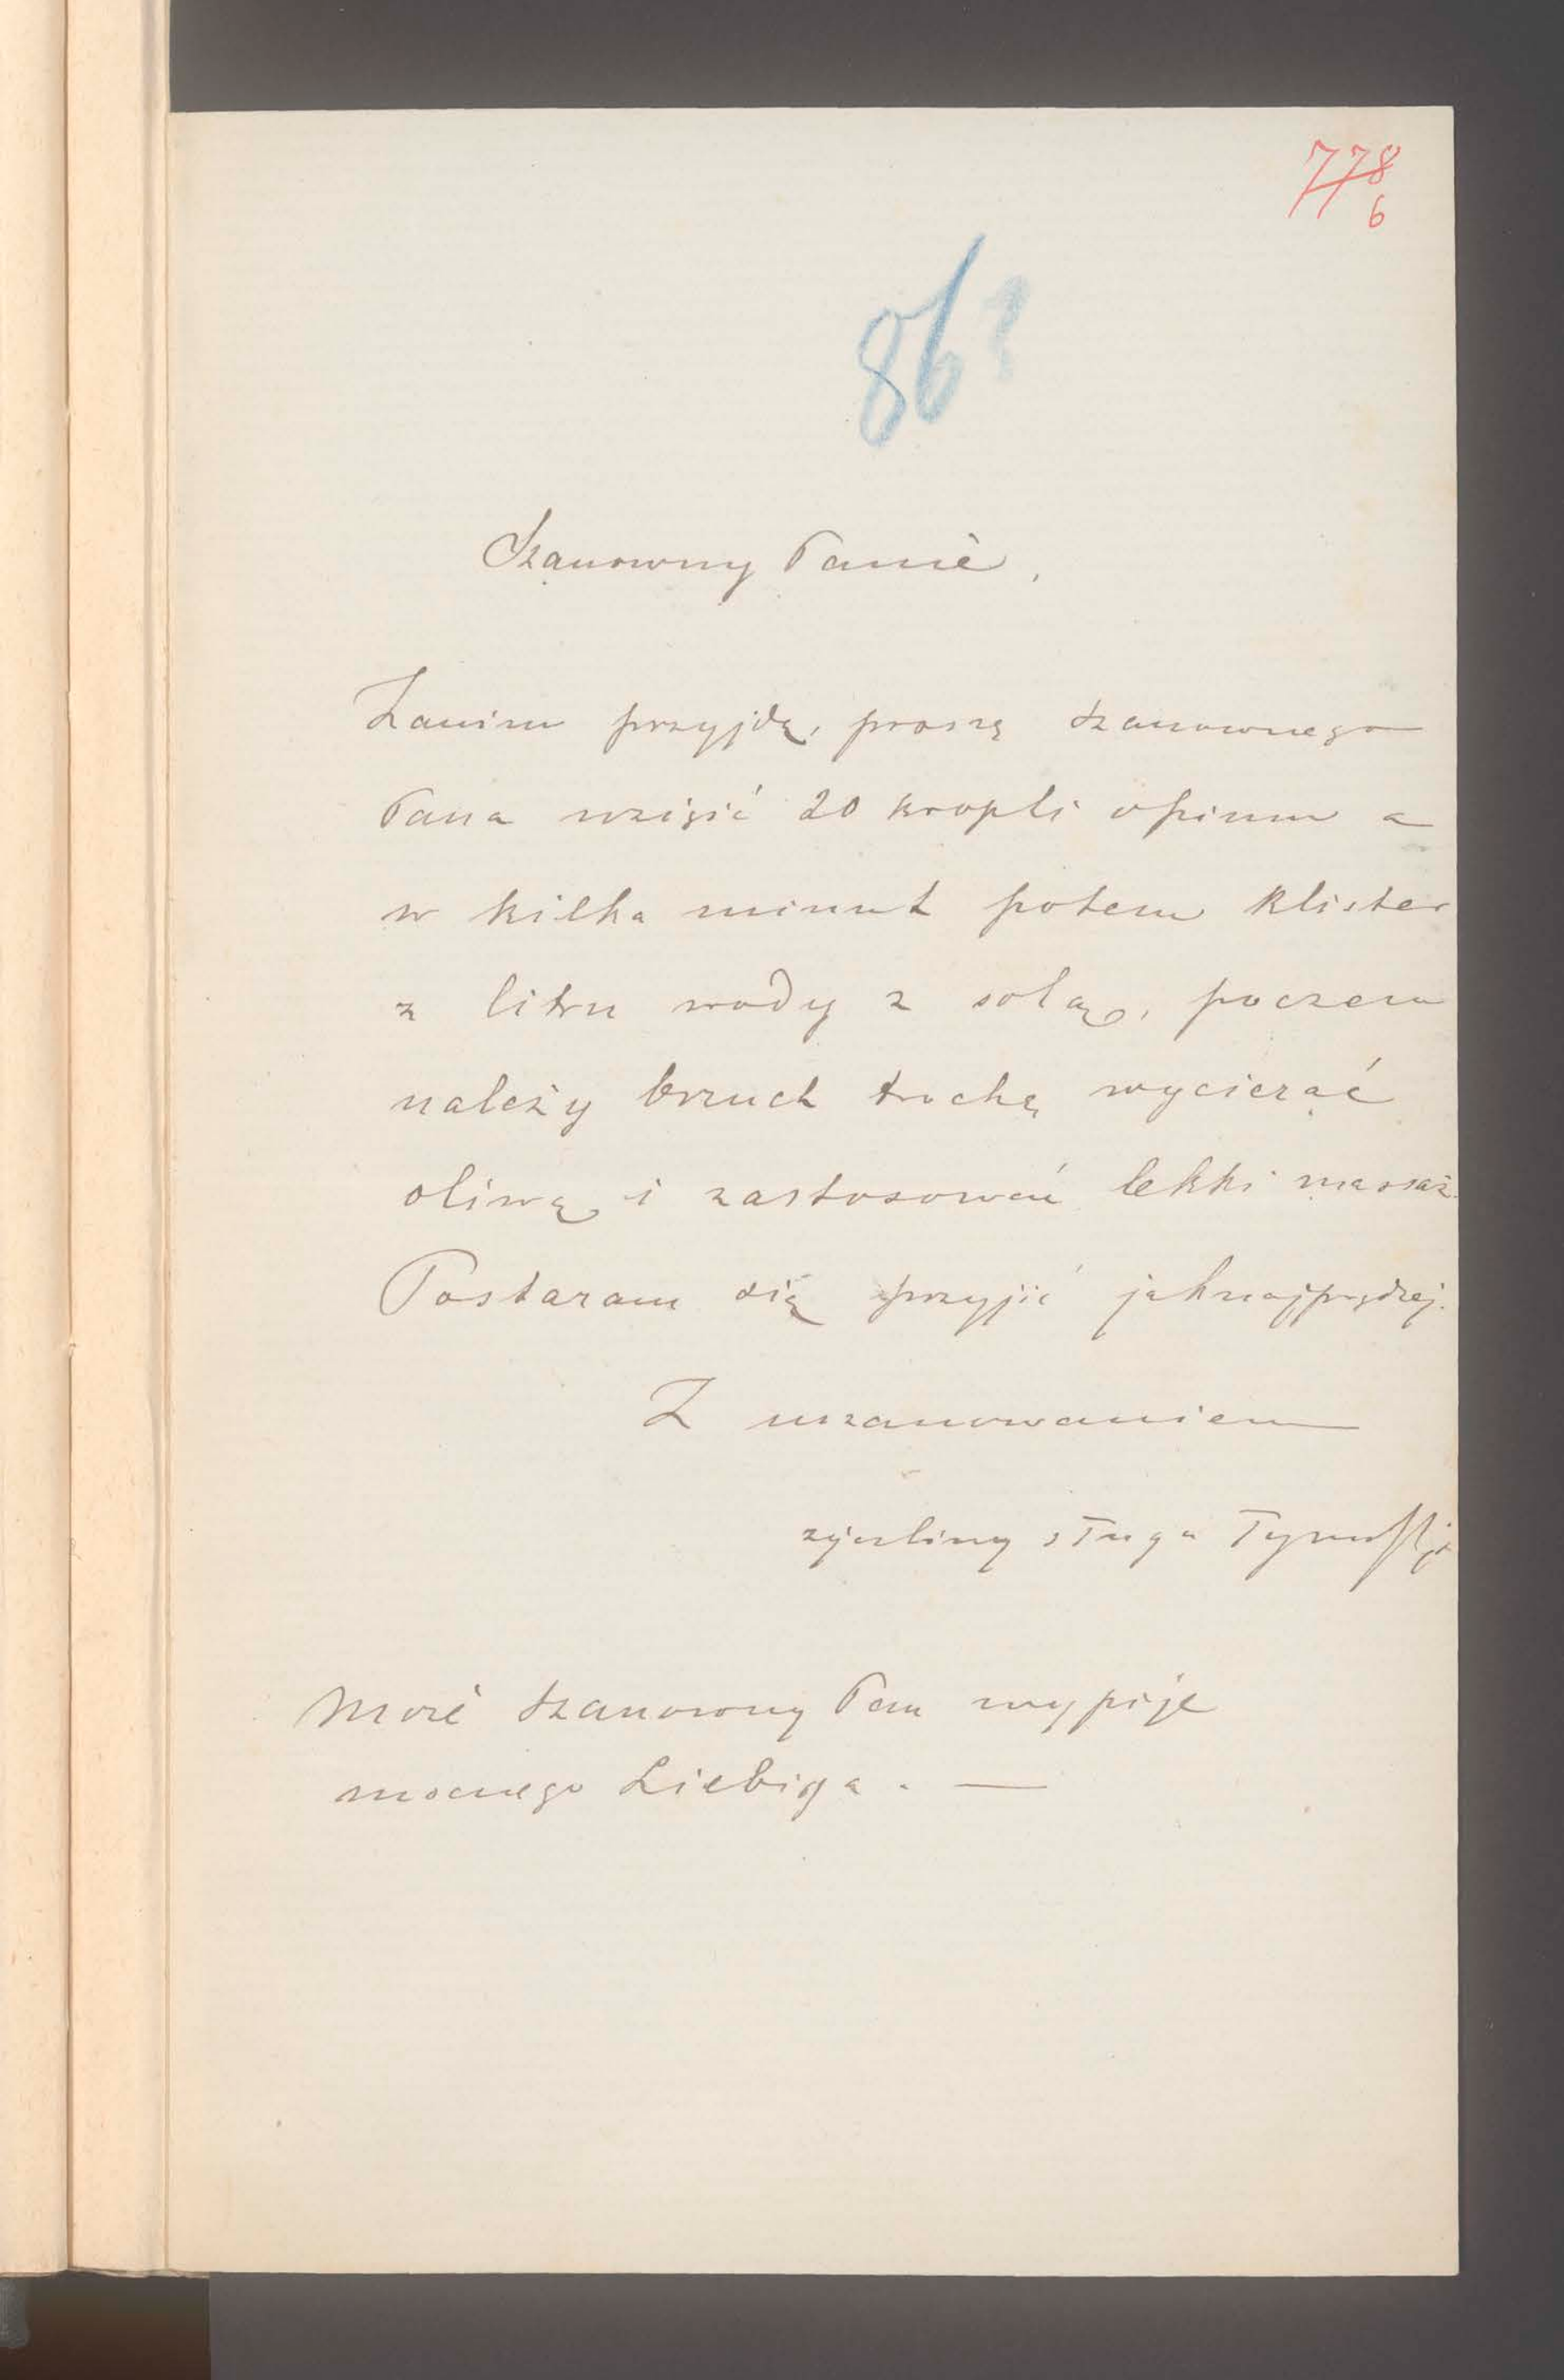 778
6
86?
Szanowny Panie,
Zanim przyjdę, proszę szanownego
Pana wziąść 20 kropli opium a
w kilka minut potem klister
z litru wody z solą, poczem
należy brzuch trochę wycierać
oliwą i zastosować lekki massaż.
Postaram się przyjść jaknajprędzej.
Z uszanowaniem
życzliwy sługa
Może szanowny Pan wypije
mocnego Liebiga. —